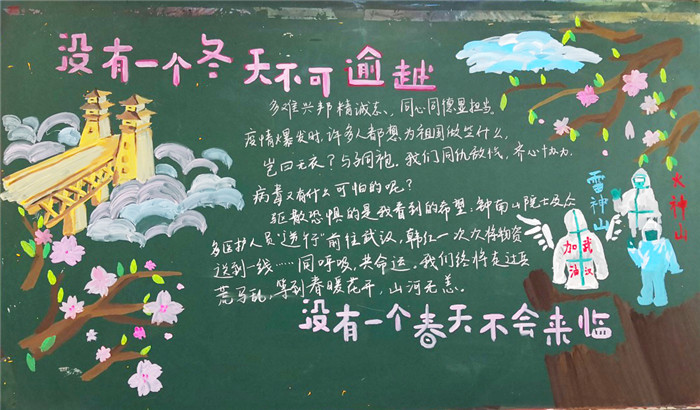 没有一个冬天不可逾越
多难兴邦精诚志、同心同德显担当。
疫情爆发时,许多人都想为祖国做些什么,
岂曰无衣?与子同袍。我们同仇敌忾,齐心协力,
病毒又有什么可怕的呢?
驱散恐惧的是我看到的希望:钟南山院士及众
多医护人员"逆行"前往武汉,韩红一次次将物资
送到一线……同呼吸,共命运。我们终将走过兵
荒马乱,等到春暖花开,山河无恙。
没有一个春天不会来临
雷神山
火神山
武汉
加油